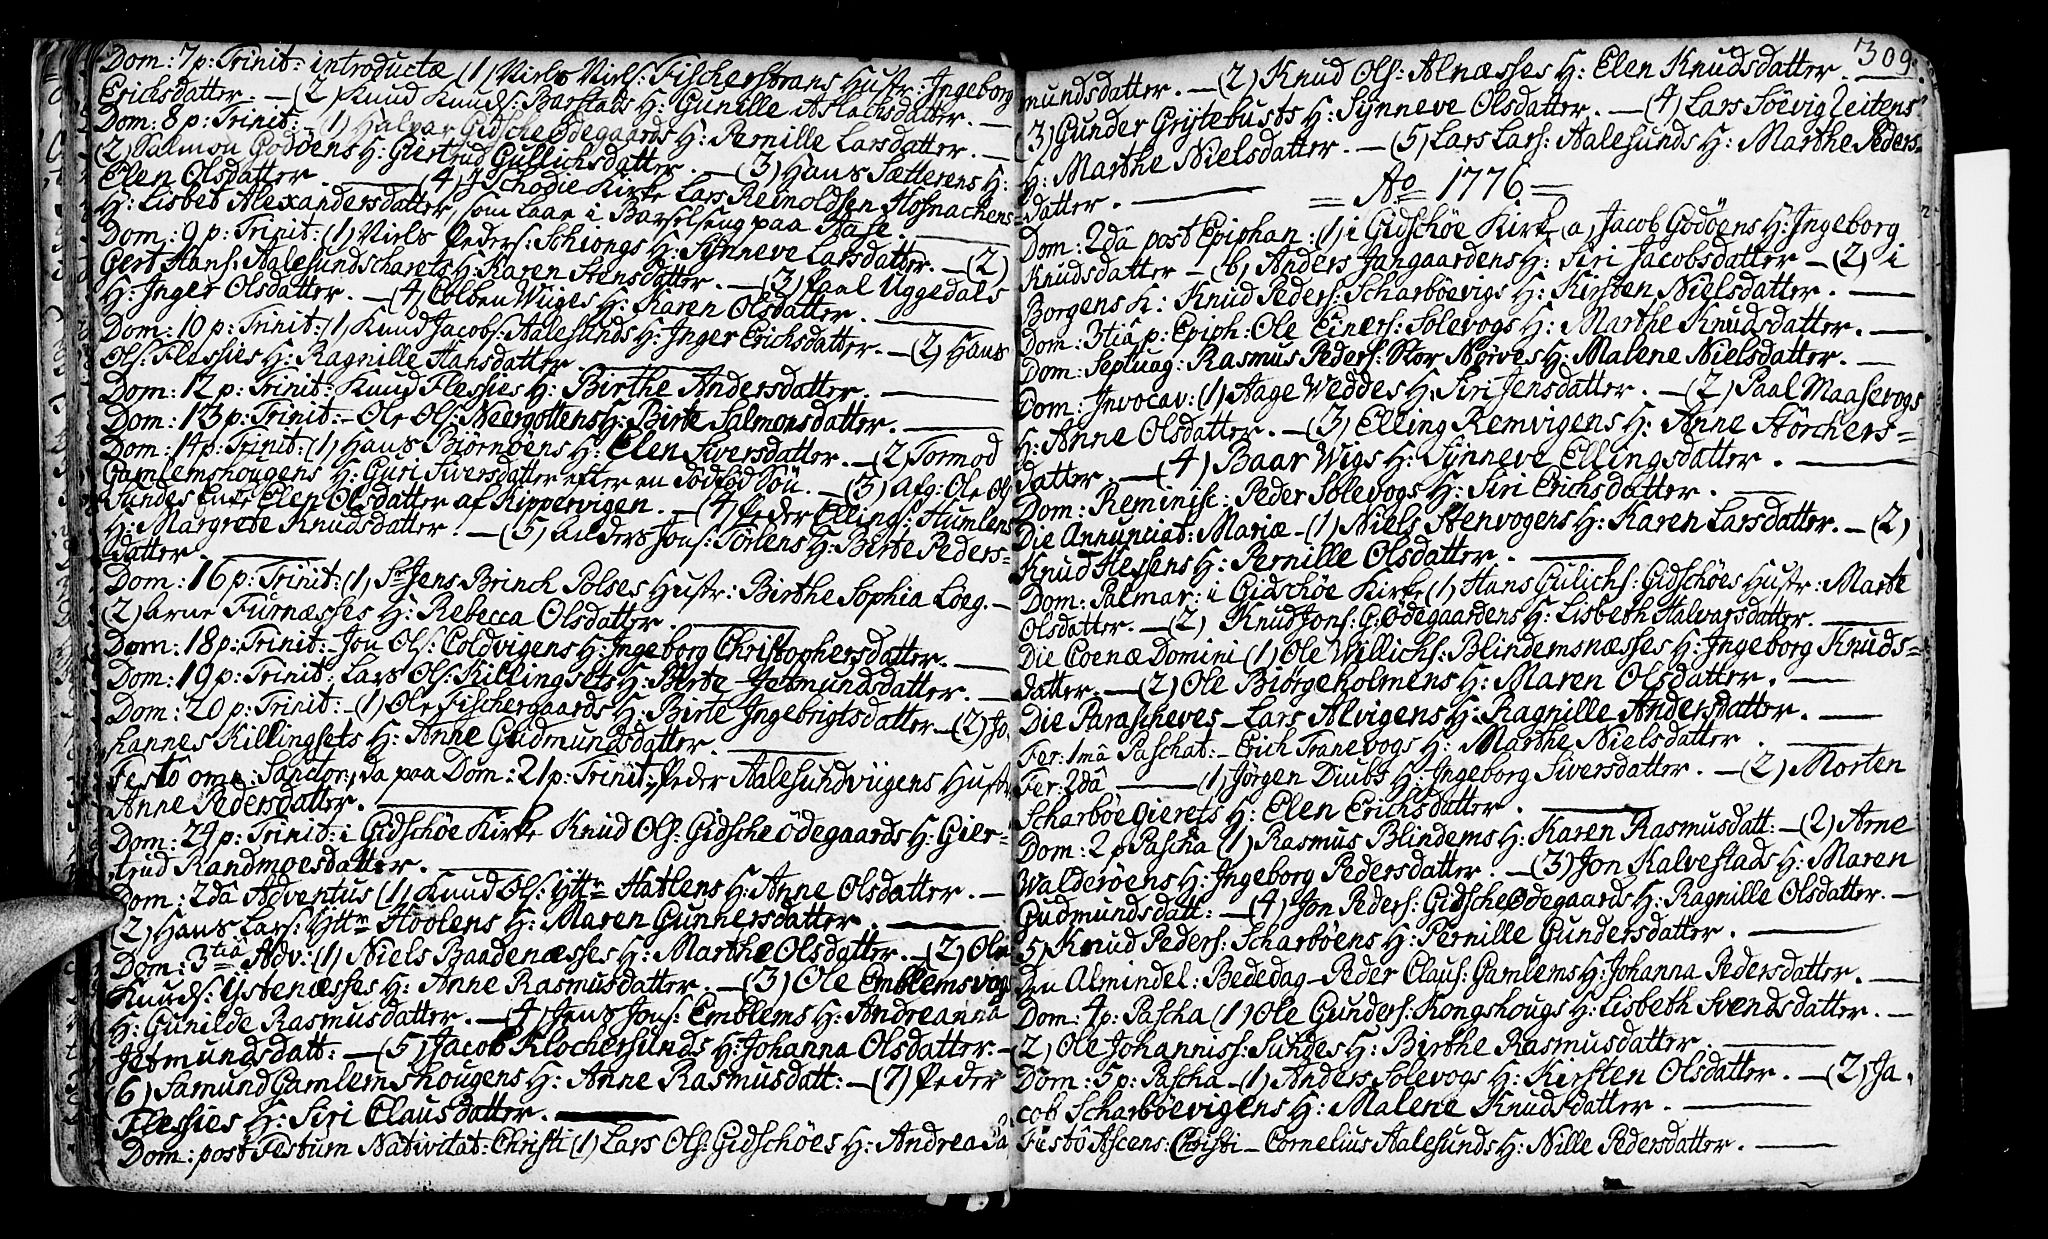 Dom: 7 p: Trinit: introductæ (1) Niels Niels: Fischerstrans Hustr: Ingeborg
Erichsdatter. — (2) Knud Knuds: Barstads H: Gunille Aslachsdatter. —
Dom: 8 p: Trinit: — (1) Halvar Gidsche Ødegaards H: Pernille Larsdatter. —
(2) Salmon Godøens H: Giertrud Gullichsdatter. — (3) Hans Sætterens H:
Elen Olsdatter. — (4) I Schodie Kirke Lars Reinoldsen Hofnachens
H: Lisbet Alexandersdatter, som laae i Barselseng paa Aase. —
Dom: 9 p: Trinit: (1) Niels Peders: Schiongs H: Synneve Larsdatter. — (2)
Gert Hans: Aalesundscharets H: Karen Stensdatter. — (3) Paal Uggedals
H: Inger Olsdatter. — (4) Colben Wiiges H: Karen Olsdatter. —
Dom: 10 p: Trinit: (1) Knud Jacobs: Aalesunds H: Inger Erichsdatter. — (2) Hans
Ols: Flessies H: Ragnille Hansdatter. —
Dom: 12 p: Trinit: Knud Flessies H: Birthe Andersdatter. —
Dom: 13 p: Trinit: — Ole Ols: Neergottens H: Birte Salmonsdatter. —
Dom: 14 p: Trinit: (1) Hans Biørnøens H: Elen Siversdatter. — (2) Tormod
Gamlemshougens H: Guri Siversdatter efter en dødfød Søn. — (3) Afg: Ole Ols:
Sundes Enke Elen Olsdatter af Kippervigen. — (4) Peder Ellings: Humlens
H: Margrete Knudsdatter. — (5) Anders Jons: Torlens H: Birte Peders-
datter. —
Dom: 16 p: Trinit: (1) Sr Jens Brinch Solses Hustr: Birthe Sophia Loeg. —
(2) Arne Furnæsses H: Rebecca Olsdatter. —
Dom: 18 p: Trinit: — Jon Ols: Coldvigens H: Ingeborg Christophersdatter. —
Dom: 19 p: Trinit: Lars Ols: Killingsets H: Birte Jetmundsdatter. —
Dom: 20 p: Trinit: — (1) Ole Fischergaards H: Birte Ingebrigtsdatter — (2) Jo-
hannes Killingsets H: Anne Gudmundsdatter. —
Festô omn: Sanctor: da paa Dom: 21 p: Trinit: Peder Aalesundviigens Hustr:
Anne Pedersdatter. —
Dom: 24 p: Trinit: i Gidschøe Kirke Knud Ols: Gidsche Ødegaards H: Gier-
trud Randmoesdatter. —
Dom: 2dâ Adventus (1) Knud Ols: Yttre Hatlens H: Anne Olsdatter. —
(2) Hans Lars: Yttre Hoolens H: Maren Gunnersdatter. —
Dom: 3tiâ Adv: (1) Niels Baadenæsses H: Marthe Olsdatter. — (2) Ole
Knuds: Ystenæsses H: Anne Rasmusdatter. — (3) Ole Emblemsvogs
H: Gunilde Rasmusdatter. — (4) Jens Jons: Emblems H: Andreanna
Jetmundsdatt: — (5) Jacob Klochersunds H: Johanna Olsdatter. —
(6) Samund Gamlemshougens H: Anne Rasmusdatt: — (7) Peder
Flessies H: Siri Clausdatter. —
Dom: post Festum Nativitat: Christi (1) Lars Ols: Gidschøes H: Andrea Sa-
309.
mundsdatter. — (2) Knud Ols: Alnæsses H: Elen Knudsdatter. —
3) Gunder Grytebusts H: Synneve Olsdatter. — (4) Lars Søevig Leitens
H: Marthe Nielsdatter. — (5) Lars Lars: Aalesunds H: Marthe Peders-
datter. —
= Ao 1776 =
Dom: 2dâ post Epiphan: (1) i Gidschøe Kirke (a) Jacob Godøens H: Ingeborg
Knudsdatter — (b) Anders Jangaardens H: Siri Jacobsdatter — (2) i
Borgens K: Knud Peders: Scharbøevigs H: Kirsten Nielsdatter. —
Dom: 3tiâ p: Epiph: Ole Einers: Solevogs H: Marthe Knudsdatter. —
Dom: Septuag: Rasmus Peders: Stor Nørves H: Malene Nielsdatter. —
Dom: Invocav: (1) Aage Weddes H: Siri Jensdatter. — (2) Paal Maasevogs
H: Anne Olsdatter. — (3) Elling Remvigens H: Anne Størchers-
datter — (4) Baar Wigs H: Synneve Ellingsdatter. —
Dom: Reminisc: Peder Solevogs H: Siri Erichsdatter. —
Die Annunciat: Mariæ — (1) Niels Stenvogens H: Karen Larsdatter. — (2)
Knud Hessens H: Pernille Olsdatter. —
Dom: Palmar: i Gidschøe Kirke (1) Hans Gulichs: Gidschøes Hustr: Marte
Olsdatter. — (2) Knud Jons: G: Ødegaardens H: Lisbeth Halvarsdatter. —
Die Coenæ Domini (1) Ole Willichs: Blindemsnæsses H: Ingeborg Knuds-
datter. — (2) Ole Biørgeholmens H: Maren Olsdatter. —
Die Parascheves — Lars Alvigens H: Ragnille Andersdatter. —
Fer: 1mâ Paschat: — Erich Tranevogs H: Marthe Nielsdatter. —
Fer: 2dâ — (1) Jørgen Diubs H: Ingeborg Siversdatter. — (2) Morten
Scharbøe Gierets H: Elen Erichsdatter. —
Dom: 2 p Pascha (1) Rasmus Blindems H: Karen Rasmusdatt: — (2) Arne
Walderøens H: Ingeborg Pedersdatter. — (3) Jon Kalvestads H: Maren
Gudmundsdatt: — (4) Jon Peders: Gidsche Ødegaards H: Ragnille Olsdatter. —
5) Knud Peders: Scharbøens H: Pernille Gundersdatter. —
Den Almindel: Bededag — Peder Claus: Gamlems H: Johanna Pedersdatter. —
Dom: 4 p: Pascha (1) Ole Gunders: Kongshougs H: Lisbeth Svendsdatter. —
2) Ole Johanniss: Sundes H: Birthe Rasmusdatter. —
Dom: 5 p: Pascha — (1) Anders Solevogs H: Kirsten Olsdatter. — (2) Ja-
cob Scharbøevigens H: Malene Knudsdatter. —
Festô Ascens: Christi — Cornelius Aalesunds H: Nille Pedersdatter. —